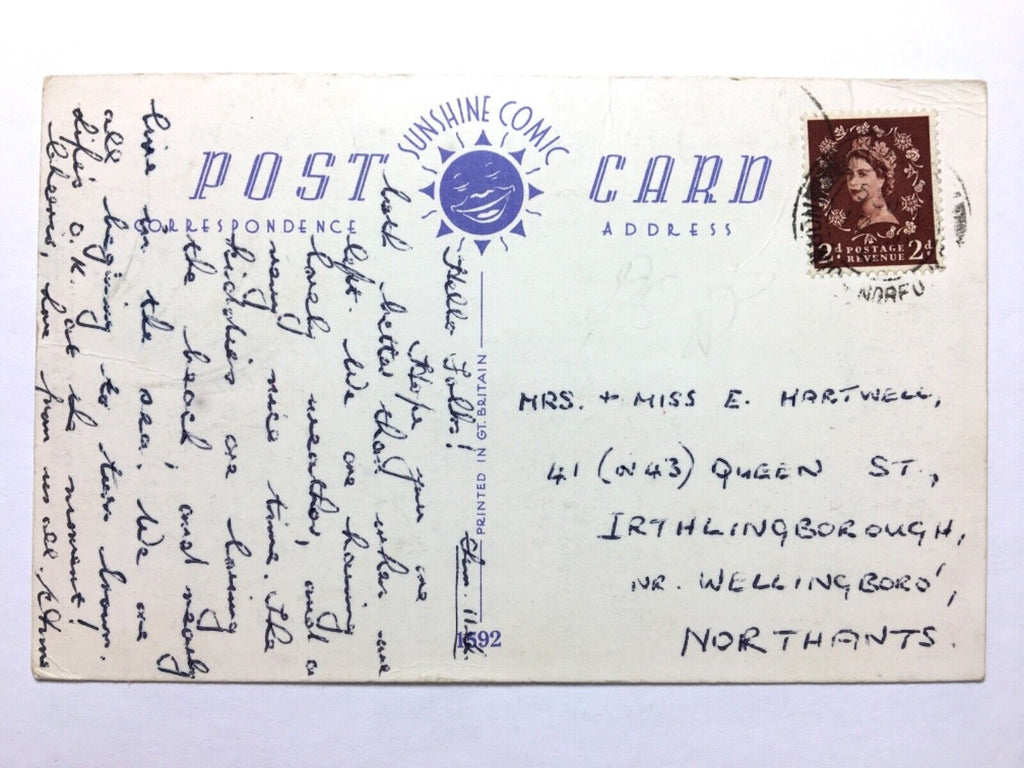 SUNSHINE COMIC
POST CARD
CORRESPONDENCE
ADDRESS
2d POSTAGE REVENUE 2d
PRINTED IN GT. BRITAIN
1592
Hello Folks!
Hope you are
both better than when we
left. We are having
lovely weather, and a
very nice time. The
kiddies are loving
the beach, and nearly
live in the sea! We are
all begining to turn brown.
Life's o.k. at the moment!
Cheerio, love from us all.
MRS. + MISS E. HARTWELL,
41 (OR 43) QUEEN ST.,
IRTHLINGBOROUGH,
NR. WELLINGBORO',
NORTHANTS.